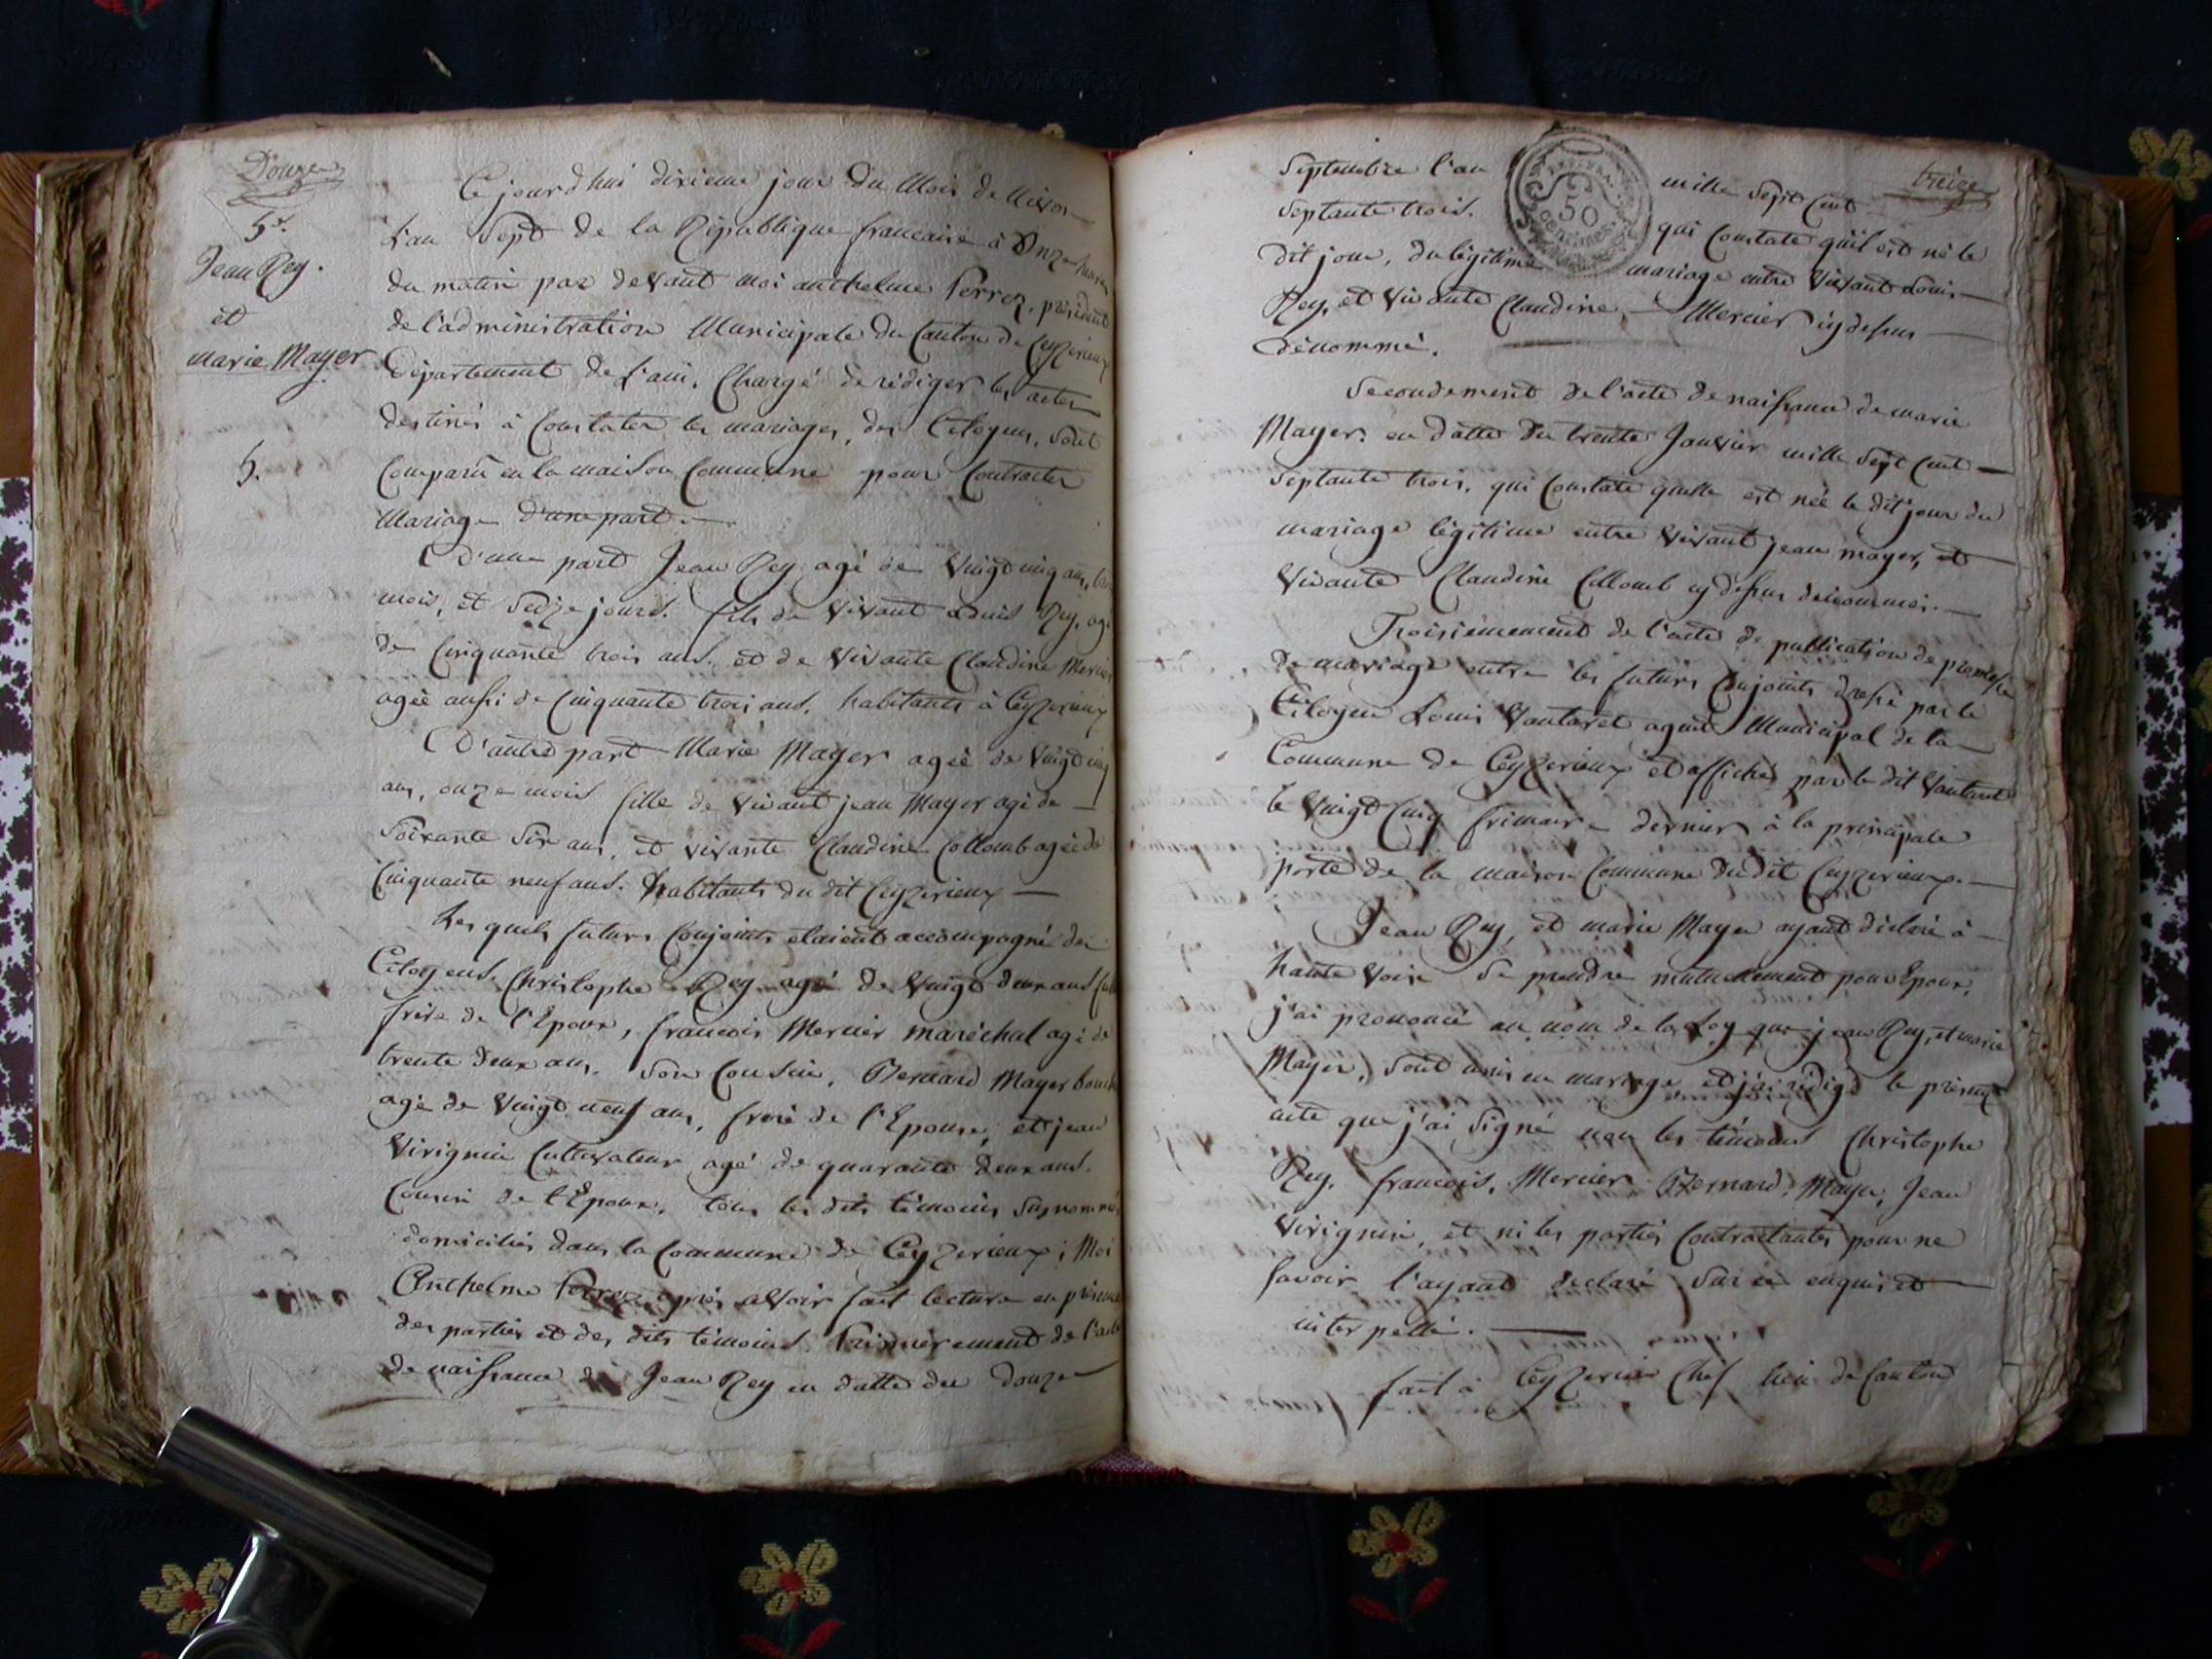 Douze
5e.
Jean Rey.
et
marie Mayer
5.
Ce jourd'hui dixieme jour du Mois de Nivos
L'an Sept de la République francaise à Onze heures
du matin par devant moi anthelme Ferroz, président
de l'administration Municipale du Canton de Ceyzerieux
Département de L'ain. Chargé de rédiger les actes
destinés à Constater les mariages, des Citoyens, sont
Comparû en la maison Commune pour Contracter
Mariage d'une part.
D'une part Jean Rey agé de Vingt cinq ans, trois
mois, et Seize jours. fils de Vivant Louis Rey, agé
de Cinquante trois ans. et de Vivante Claudine Mercier
ageé aussi de Cinquante trois ans. habitants à Ceyzerieux
D'autre part Marie Mayer ageé de Vingt cinq
ans, onze mois fille de Vivant jean Mayer agé de
Soixante Six ans, et vivante Claudine Collomb ageé de
Cinquante neuf ans. habitants du dit Ceyzerieux
Les quels futurs Conjoints etaient accompagné des
Citoyens Christophe Rey agé de Vingt deux ans
frère de l'Epoux, francois Mercier maréchal agé de
trente deux ans. Son Cousin, Bernard Mayer
agé de Vingt neuf ans, frere de l'Epouse, et jean
Virignin Cultivateur agé de quarante deux ans.
Cousin de l'Epoux. tous les dits témoins Susnommés
domiciliés dans la Commune de Ceyzerieux; Moi
Anthelme Ferroz après avoir fait lecture en présence
des parties et des dits témoins. Primierement de l'acte
de naissance de Jean Rey en datte du douze
treize
Septembre l'an mille Sept Cent
Septante trois. qui Constate quil est né le
dit jour, du légitime mariage entre Vivant Louis
Rey, et Vivante Claudine Mercier cy dessus
dénommé.
50
Centimes
Secondement de l'acte de naissance de marie
Mayer. en datte du trente Janvier mille Sept Cent
Septante trois, qui Constate quelle est née le dit jour du
mariage légitime entre Vivant jean mayer, et
Vivante Claudine Collomb cy dessus dénommés.
Troisiemement de l'acte de publication de promesse
de mariage entre les futurs Conjoints dressé par le
Citoyen Louis Vautaret agent Municipal de la
Commune de Ceyzerieux et affiché par le dit Vautaret
le Vingt Cinq frimaire dernier à la principale
porte de la maison Commune du dit Ceyzerieux.
Jean Rey, et marie Mayer ayant déclaré à
haute Voix Se prendre mutuellement pour Epoux,
j'ai prononcé au nom de la Loy que jean Rey, et marie
Mayer, Sont unis en mariage et j'ai rédigé le présent
acte que j'ai Signé non les témoins Christophe
Rey. francois, Mercier Bernard, Mayer, Jean
Virignin, et ni les parties Contractantes pour ne
savoir l'ayant declaré Sur ce enquis et
interpellé.
fait à Ceyzerieu Chef lieu de Canton